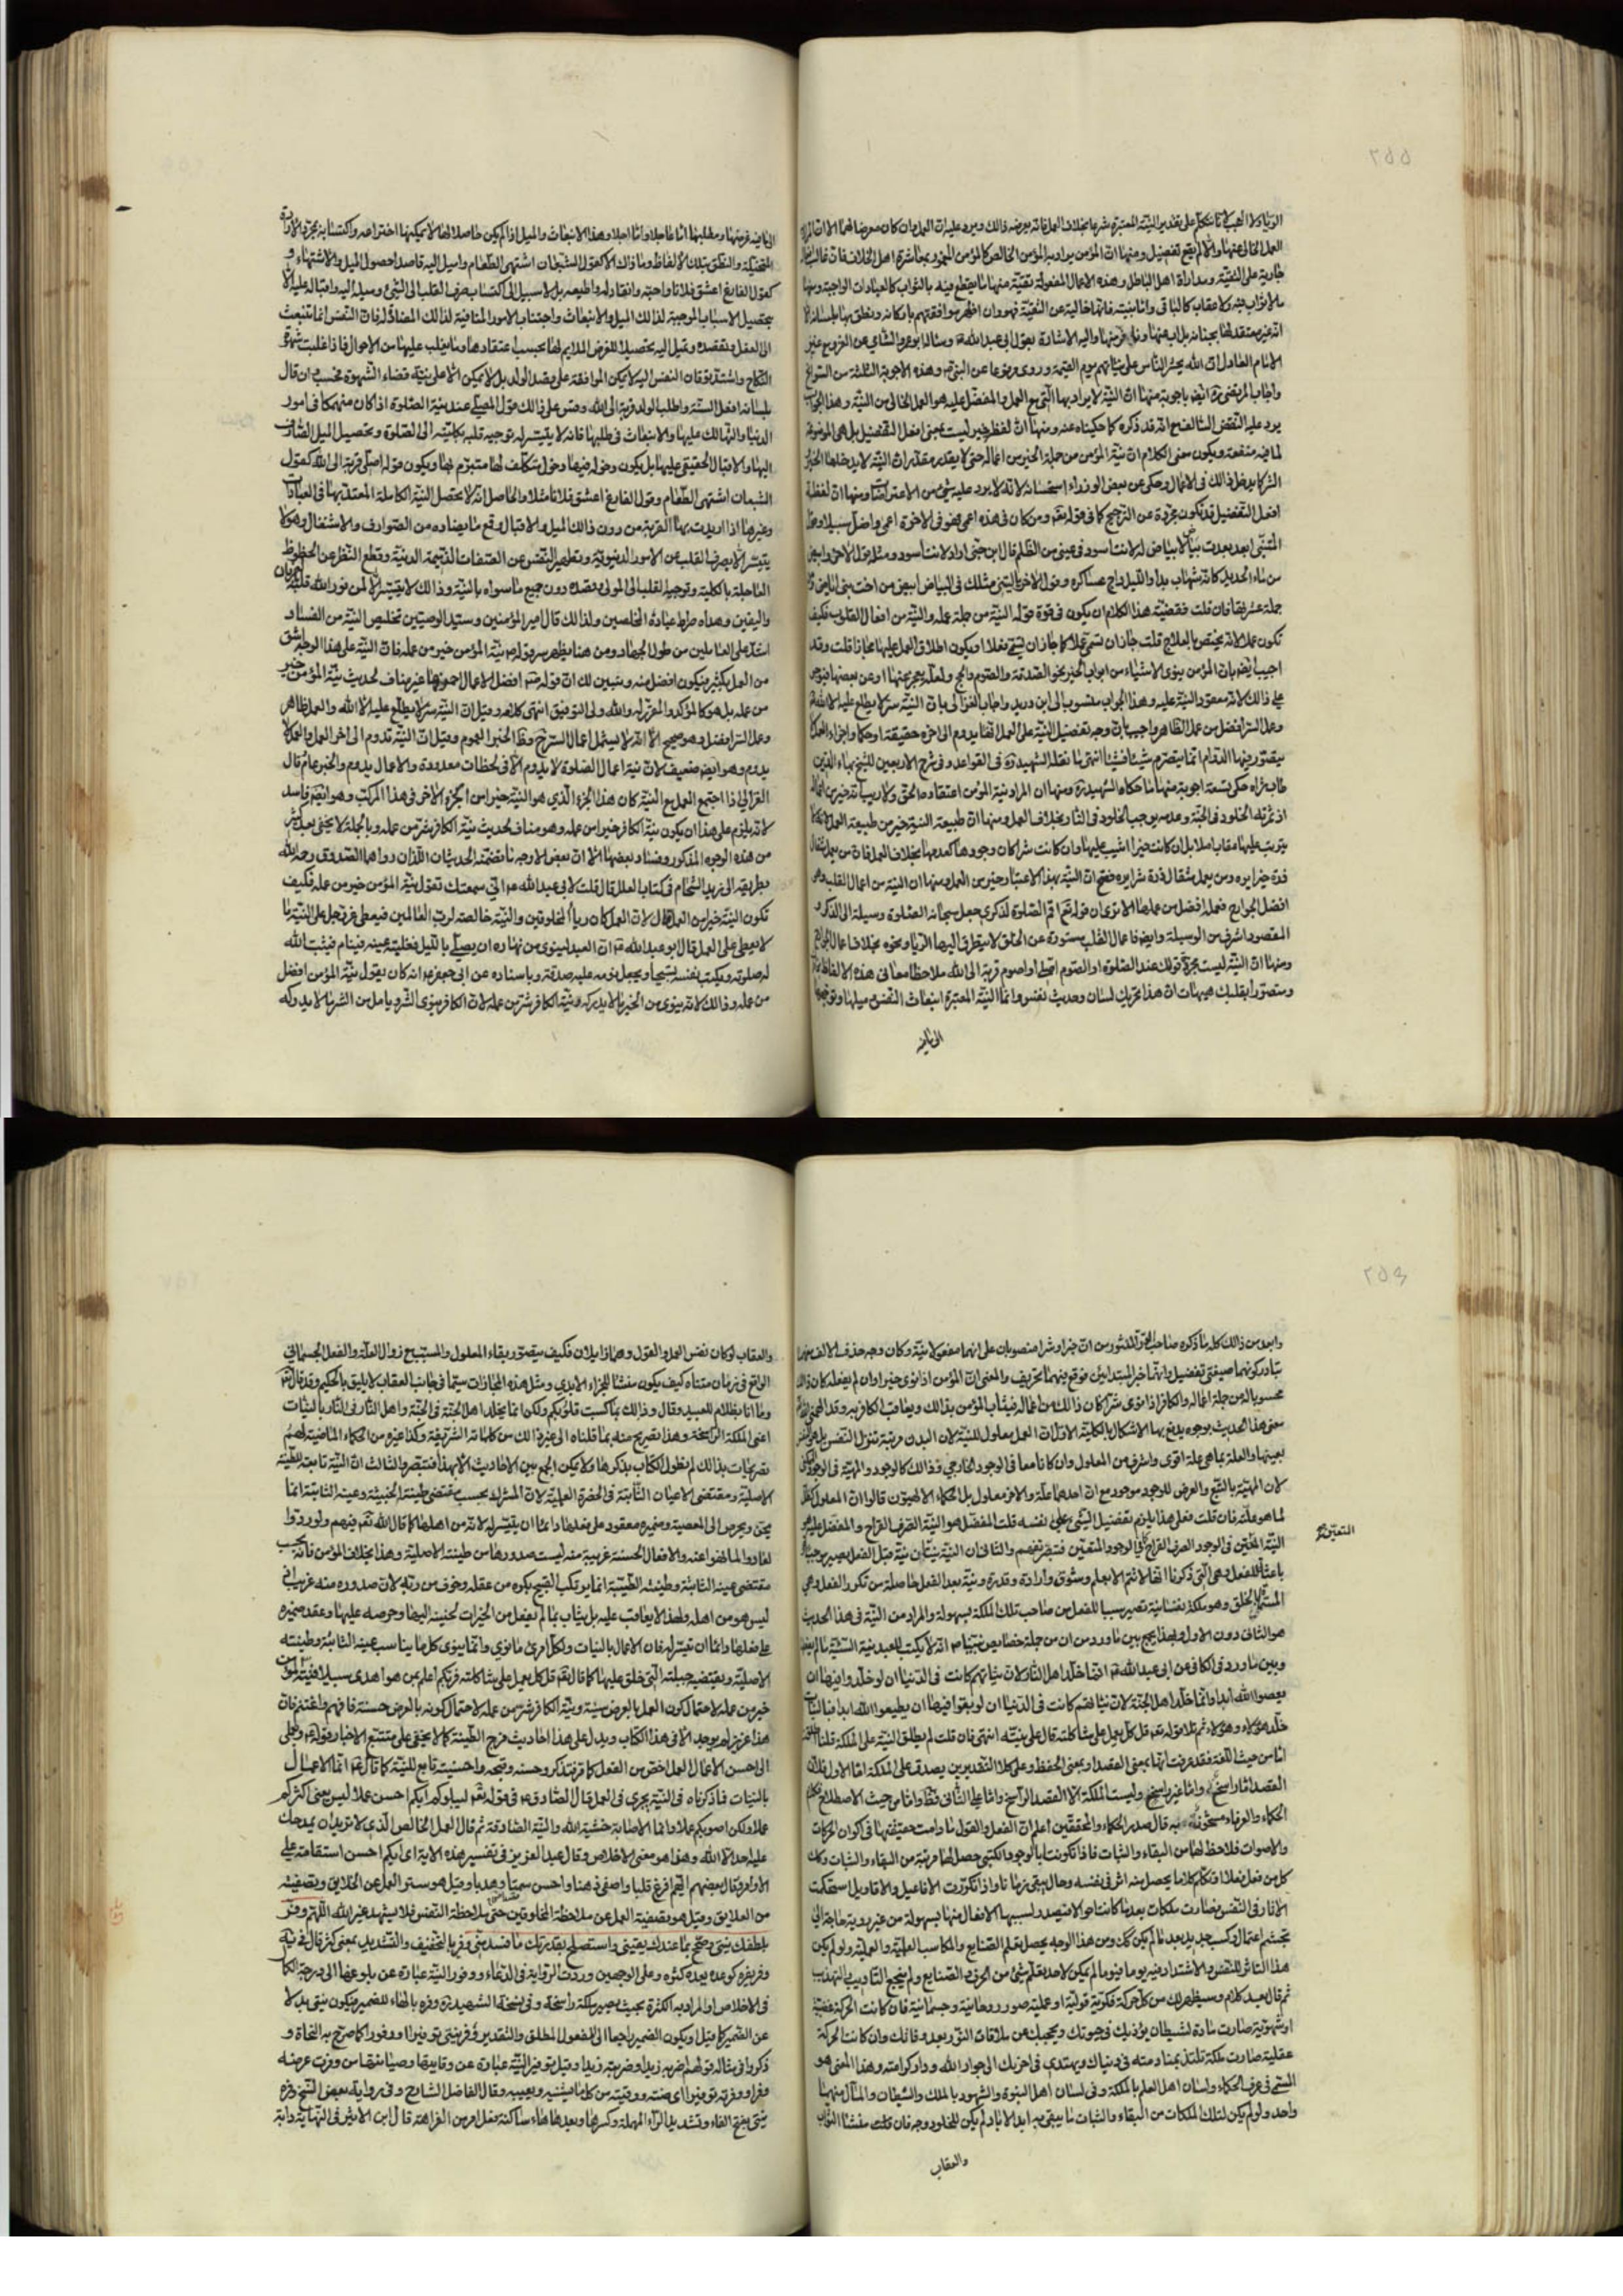 الرياء ولا العجب لأنا نتكلم على تقدير النية المعتبرة شرعا بخلاف العمل فانه يعرضه ذالك ويرد عليه ان العمل وان كان معرضا لهما الا ان المراد
العمل الخالى عنهما والا لم يقع تفضيل ومنها ان المؤمن يراد به المؤمن الخالص كالمؤمن المغمور بمعاشرة اهل الخلاف فان غالب افعاله
جارية على التقية ومداراة اهل الباطل وهذه الاعمال المفعولة تقية منها ما يقطع فيه بالثواب كالعبادات الواجبة ومنها
ما لا ثواب فيه ولا عقاب كالباقى واما نيته فانها خالية عن التقية فهو وان اظهر موافقتهم باركانه ونطق بها بلسانه الا
انه غير معتقد لها بجنانه بل اب عنها ونافر منها واليه الاشارة بقول ابى عبد الله ع وسئاله ابو عمرو الشامى عن الغزو مع غير
الامام العادل ان الله يحشر الناس على نياتهم يوم القيمة وروى مرفوعا عن النبى ص وهذه الاجوبة الثلثة من السوانح
واجاب المرتضى ره ايضا باجوبة منها ان النية لا يراد بها التى مع العمل والمفضل عليه هو العمل الخالى من النية وهذا الجواب
يرد عليه النقض السالف مع انه قد ذكره كما حكيناه عنه ومنها ان لفظ خير ليست بمعنى افعل التفضيل بل هى الموضوعة
لما فيه منفعة ويكون معنى الكلام ان نية المؤمن من جملة الخير من اعماله حتى لا يقدر مقدر ان النية لا يدخلها الخير
الشر كما يدخل ذالك فى الاعمال وحكى عن بعض الوزراء استحسانه لانه لا يرد عليه شئ من الاعتراضات ومنها ان لفظة
افعل التفضيل قد تكون مجردة عن الترجيح كما فى قوله تعم ومن كان فى هذه اعمى فهو فى الاخرة اعمى واضل سبيلا وقول
المتنبى ابعد بعدت بياضا لا بياض له لانت اسود فى عينى من الظلم قال ابن جنى اراد لانت اسود ومثله قول الاخر وابيض
من ماء الحديد كانه شهاب بدا والليل داج عساكره وقول الاخر يا ليتنى مثلك فى البياض ابيض من اخت بنى اباض
تكون عملا لانه يختص بالعلاج قلت جاز ان تسمى عملا كما جاز ان تسمى فعلا او يكون اطلاق العمل عليها مجازا قلت وقد
اجيب ايضا بان المؤمن ينوى الاشياء من ابواب الخير نحو الصدقة والصوم والحج ولعله يعجز عنها او عن بعضها فيؤجر
على ذالك لانه معقود النية عليه وهذا الجواب منسوب الى ابن دريد واجاب الغزالى بان النية سر لا يطلع عليه الا الله
وعمل السر افضل من عمل الظاهر واجيب بان وجه تفضيل النية على العمل انها يدوم الى اخره حقيقة او حكما واجزاء العمل
يتصور فيها الدوام انما يتصرم شيئا فشيئا انتهى ما نقله الشهيد ره فى القواعد وفى شرح الاربعين للشيخ بهاء الدين
طاب ثراه حكى تسعة اجوبة منها ما حكاه الشهيد ره ومنها ان المراد بنية المؤمن اعتقاده الحق ولا ريب انه خير من اعماله
اذ ثمرته الخلود فى الجنة وعدمه يوجب الخلود فى النار بخلاف العمل ومنها ان طبيعة النية خير من طبيعة العمل لانه لا
يترتب عليها عقاب اصلا بل ان كانت خيرا اثيب عليها وان كانت شرا كان وجودها كعدمها بخلاف العمل فان من يعمل مثقال
ذرة خيرا يره ومن يعمل مثقال ذرة شرا يره فصح ان النية بهذا الاعتبار خير من العمل ومنها ان النية من اعمال القلب وهو
افضل الجوارح فعمله افضل من عملها الا ترى ان قوله تعم اقم الصلوة لذكرى جعل سبحانه الصلوة وسيلة الى الذكر و
المقصود اشرف من الوسيلة وايضا فاعمال القلب مستورة عن الخلق لا يتطرق اليها الرياء ونحوه بخلاف اعمال الجوارح
ومنها ان النية ليست مجرد قولك عند الصلوة او الصوم اصلى او اصوم قربة الى الله ملاحظا معانى هذه الالفاظ
ومتصورا بقلبك هيهات ان هذا تحريك لسان وحديث نفس وانما النية المعتبرة انبعاث النفس وميلها وتوجهها
الى ما فيه
الى ما فيه غرضها ومطلبها اما عاجلا واما اجلا وهذا الانبعاث والميل اذا لم يكن حاصلا لها لا يمكنها اختراعه واكتسابه بمجرد الارادة
المتخيلة والنطق بتلك الالفاظ وما ذالك الا كقول الشبعان اشتهى الطعام واميل اليه قاصدا حصول الميل والاشتهاء و
كقول الفارغ اعشق فلانا واحبه وانقاد له واطيعه بل لا سبيل الى اكتساب صرف القلب الى الشئ وميله اليه واقباله عليه الا
بتحصيل الاسباب الموجبة لذالك الميل والانبعاث واجتناب الامور المنافية لذالك المضادة له فان النفس انما تنبعث
الى الفعل وتقصده وتميل اليه تحصيلا للغرض الملايم لها بحسب اعتقادها وما يغلب عليها من الاحوال فاذا غلبت شهوة
النكاح واشتد توقان النفس اليه لا يمكن المواقعة على قصد الولد بل لا يمكن الا على نية قضاء الشهوة فحسب وان قال
بلسانه افعل السنة واطلب الولد قربة الى الله وقس على ذالك قول المصلى عند نية الصلوة اذا كان منهمكا فى امور
الدنيا والتهالك عليها والانبعاث فى طلبها فانه لا يتيسر له توجيه قلبه بكليته الى الصلوة وتحصيل الميل الصادق
اليها والاقبال الحقيقى عليها بل يكون دخوله فيها دخول متكلف لها متبرم بها ويكون قوله اصلى قربة الى الله كقول
الشبعان اشتهى الطعام وقول الفارغ اعشق فلانا مثلا والحاصل انه لا يحصل النية الكاملة المعتد بها فى العبادات
وغيرها اذا اريدت بها القربة من دون ذالك الميل والاقبال وقمع ما يضاده من الصوارف والاشغال وهو لا
يتيسر الا بصرف القلب عن الامور الدنيوية وتطهير النفس عن الصفات الذميمة الدنية وقطع النظر عن الحظوظ
العاجلة بالكلية وتوجيه القلب الى المولى وقصده دون جميع ما سواه بالنية وذالك لا يتيسر الا لمن نور الله قلبه بالعرفان
واليقين وهداه صراط عبادة المخلصين ولذالك قال امير المؤمنين وسيد الوصيين تخليص النية من الفساد
اشد على العاملين من طول الجهاد ومن هنا يظهر سر قوله ص نية المؤمن خير من عمله فان النية على هذا الوجه اشق
من العمل بكثير فيكون افضل منه وتبين لك ان قوله ص افضل الاعمال احمزها غير مناف لحديث نية المؤمن خير
من عمله بل هو كالمؤكد والمقرر له والله ولى التوفيق انتهى كلامه وقيل ان النية سر لا يطلع عليه الا الله والعمل ظاهر
وعمل السر افضل وهو صحيح الا انه لا يشمل اعمال السر مع وظاهر الخبر العموم وقيل ان النية تدوم الى اخر العمل والعمل لا
يدوم وهو ايضا ضعيف لان نية اعمال الصلوة لا يدوم الا فى لحظات معدودة والاعمال يدوم والخبر عام قال
الغزالى اذا اجتمع العمل مع النية كان هذا الجزء الذى هو النية خيرا من الجزء الاخر فى هذا المركب وهو ايضا فاسد
لانه يلزم على هذا ان يكون نية الكافر خيرا من عمله وهو مناف لحديث نية الكافر شر من عمله وبالجملة لا يخفى بعد كثير
من هذه الوجوه المذكورة وفساد بعضها الا ان بعض الاوجه ما تضمنه الحديثان اللذان رواهما الصدوق رحمه الله
بطريقه الى زيد الشحام فى كتاب العلل قال قلت لابى عبد الله ع انى سمعتك تقول نية المؤمن خير من عمله فكيف
تكون النية خيرا من العمل قال لان العمل كان رياء للمخلوقين والنية خالصة لرب العالمين فيعطى عز وجل على النية ما
لا يعطى على العمل قال ابو عبد الله ع ان العبد لينوى من نهاره ان يصلى بالليل فتغلبه عينه فينام فيثبت الله
له صلوته ويكتب نفسه تسبيحا ويجعل نومه عليه صدقة وباسناده عن ابى جعفر ع انه كان يقول نية المؤمن افضل
من عمله وذالك لانه ينوى من الخير ما لا يدركه ونية الكافر شر من عمله لان الكافر ينوى الشر ويامل من الشر ما لا يدركه
وابعد من ذالك كله ما ذكره صاحب الدر المنثور من ان خيرا وشرا منصوبان على انهما مفعولا نية وكان وجه حذف الالف منهما
تبادر كونهما صيغتى تفضيل وانهما خبر المبتداين فوقع فيهما تحريف والمعنى ان المؤمن اذا نوى خيرا وان لم يفعله كان ذالك
محسوبا له من جملة اعماله والكافر اذا نوى شرا كان ذالك من اعماله فيثاب المؤمن بذالك ويعاقب الكافر به وقد
معنى هذا الحديث بوجوه يدفع بها الاشكال بالكلية الاول ان العمل معلول للنية لان البدن مرتبة تنزل النفس بل هو النفس
بعينها والعلة بما هى علة اقوى واشرف من المعلول وان كانا معا فى الوجود الخارجى فذالك كالوجود والمهية فى الوجود
لان المهية بالتبع والعرض للوجود موجود مع ان احدهما علة والاخر معلول بل الحكماء الالهيون قالوا ان المعلول
لما هو علته فان قلت فعلى هذا يلزم تفضيل الشئ على نفسه قلت المفضل هو النية الصرف القراح والمفضل عليه هو
النية المتعين فى الوجود الصرف القراح فى الوجود المتعين فتبصر تفهم والثانى ان النية نيتان نية قبل الفعل يصير موجبا
باعثا للفعل وهى التى ذكرنا انها لا تتم الا بعلم وشوق وارادة وقدرة ونية بعد الفعل حاصلة من تكرر الفعل وهى
المسماة بالخلق وهو ملكة نفسانية تصير سببا للفعل من صاحب تلك الملكة بسهولة والمراد من النية فى هذا الحديث
هو الثانى دون الاول وبهذا يجمع بين ما ورد من ان من جملة خصايص نبينا ص انه لا يكتب للعبد نية السيئة ما لم يفعلها
وبين ما ورد فى الكافى عن ابى عبد الله ع انما خلد اهل النار لان نياتهم كانت فى الدنيا ان لو خلدوا فيها ان
يعصوا الله ابدا وانما خلد اهل الجنة لان نياتهم كانت فى الدنيا ان لو بقوا فيها ان يطيعوا الله ابدا فبالنيات
خلد هؤلاء وهؤلاء ثم تلا قوله تعم قل كل يعمل على شاكلته قال على نيته انتهى فان قلت لم يطلق النية على الملكة قلنا
اما من حيث اللغة فقد عرفت انها بمعنى القصد او بمعنى الحفظ وعلى كلا التقديرين يصدق على الملكة اما الاول فلان
القصد اما راسخ واما غير راسخ وليست الملكة الا القصد الراسخ واما على الثانى فظ واما من حيث الاصطلاح
الحكماء والعرفاء به قال صدر الحكماء والمحققين اعلم ان الفعل والقول ما دامت حقيقتهما فى اكوان الحركات
والاصوات فلا حظ لهما من البقاء والثبات فاذا تكونت بالوجود الكتبى حصل لها مرتبة من البقاء والثبات وكك
كل من فعل فعلا او تكلم كلاما يحصل منه اثر فى نفسه وحال يبقى زمانا واذا تكررت الافاعيل والاقاويل استحكمت
الاثار فى النفس فصارت ملكات بعد ما كانت احوالا فتصدر بسببها الافعال منها بسهولة من غير روية وحاجة الى
تجشم اعتمال وكسب جديد بعد ما لم يكن كك ومن هذا الوجه يحصل تعلم الصنايع والمكاسب العلمية والعملية ولو لم يكن
هذا التاثر للنفس والاشتداد فيه يوما فيوما لم يمكن لاحد تعلم شئ من الحرف والصنايع ولم ينجع التاديب والتهذيب
ثم قال بعد كلام وسيظهر لك من كل حركة فكرية قولية او عملية صور روحانية وجسمانية فان كانت الحركة غضبية
او شهوية صارت مادة لشيطان يؤذيك فى حيوتك ويحجبك عن ملاقات النور بعد وفاتك وان كانت الحركة
عقلية صارت ملكة تلتذ بمنادمته فى دنياك ويهتدى فى اخريك الى جوار الله ودار كرامته وهذا المعنى هو
المسمى فى عرف الحكماء ولسان اهل العلم بالملكة وفى لسان اهل النبوة والشهود بالملك والشيطان والمآل منهما
واحد ولو لم يكن لتلك الملكات من البقاء والثبات ما يبقى به ابد الاباد لم يكن للخلود وجه فان منشأ الثواب
التعين
والعقاب
والعقاب لو كان نفس العمل والقول وهما زايلان فكيف يتصور بقاء المعلول والمسبب مع زوال العلة والفعل الجسمانى
الواقع فى زمان متناه كيف يكون منشئا للجزاء الابدى ومثل هذه المجازات سيما فى جانب العقاب لا يليق بالحكيم وقد قال تعم
وما انا بظلام للعبيد وقال وذالك بما كسبت قلوبكم ولكن انما يخلد اهل الجنة فى الجنة واهل النار فى النار بالنيات
اعنى الملكة الراسخة وهذا تصريح منه بما قلناه الى غير ذالك من كلماته الشريفة وكذا غيره من الحكماء الماضية لهم
تصريحات بذالك لم نطول الكتاب بذكرها ولا يمكن الجمع بين الاحاديث الا بهذا فتبصر والثالث ان النية تابعة للطينة
الاصلية ومقتضى الاعيان الثابتة فى الحضرة العلمية لان المشرك بحسب مقتضى طينته الخبيثة وعينه الثابتة انما
يحن ويحرص الى المعصية وضميره معقود على فعلها دائما ان يتيسر له لانه من اهلها كما قال الله تعم فيهم ولو ردوا
لعادوا لما نهوا عنه والافعال الحسنة غريبة منه ليست صدورها من طينته الاصلية وهذا بخلاف المؤمن فانه بحسب
مقتضى عينه الثابتة وطينته الطيبة انما يرتكب القبيح بكره من عقله وخوف من ربه لان صدوره منه غريب
ليس هو من اهله ولهذا لا يعاقب عليه بل يثاب بما لم يفعل من الخيرات لحنينه اليها وحرصه عليها وعقد ضميره
على فعلها دائما ان تيسر له فان الاعمال بالنيات ولكل امرئ ما نوى وانما ينوى كل ما يناسب عينه الثابتة وطينته
الاصلية ويقتضيه جبلته التى خلق عليها كما قال تعم قل كل يعمل على شاكلته فربكم اعلم بمن هو اهدى سبيلا فنية المؤمن
خير من عمله لاحتمال كون العمل بالعرض سيئة ونية الكافر شر من عمله لاحتمال كونه بالعرض حسنة فافهم واغتنم فان
هذا عزيز لم يوجد الا فى هذا الكتاب ويدل على هذا احاديث مزج الطينة كما لا يخفى على متتبع الاخبار وقوله ع وبعملى
الى احسن الاعمال العمل اخص من الفعل كما قد تذكر وحسنه وقبحه واحسنيته تابع للنية كما قال ع انما الاعمال
بالنيات فما ذكرناه فى النية يجرى فى العمل قال الصادق ع فى قوله تعم ليبلوكم ايكم احسن عملا ليس يعنى اكثركم
عملا ولكن اصوبكم عملا وانما الاصابة خشية الله والنية الصادقة ثم قال العمل الخالص الذى لا تريد ان يمدحك
عليه احد الا الله وهذا هو معنى الاخلاص وقال عبد العزيز فى تفسير هذه الاية اى ايكم احسن استقامة على
الاوامر وقال بعضهم ايكم افرغ قلبا واصفى ذهنا واحسن سمتا وهديا وقيل هو ستر العمل عن الخلائق وتصفيته
من العلايق وقيل هو تصفية العمل عن ملاحظة المخلوقين حتى ملاحظة النفس فلا يشهد غير الله اللهم وفر
بلطفك نيتى وصحح بما عندك يقينى واستصلح بقدرتك ما فسد منى وفر بالتخفيف والتشديد بمعنى كثر قال فى
وفره كوعده يعده كثره وعلى الوجهين وردت الرواية فى الدعاء ووفور النية عبارة عن بلوغها الى درجة الكمال
فى الاخلاص او المراد به الكثرة بحيث يصير ملكة راسخة وفى نسخة الشهيد ره وفره بالهاء للضمير فيكون نيتى بدلا
عن الضمير كما قيل او يكون الضمير راجعا الى المفعول المطلق والتقدير وفر نيتى توفيرا او وفورا كما صرح به النحاة و
ذكروا فى مثاله قولهم ضربه زيدا وضربته زيدا وقيل توفير النية عبارة عن وقايتها وصيانتها من وفرت عرضه
وفرا ووفرته توفيرا اى صنته ووقيته من كل ما يشينه ويعيبه وقال الفاضل الشارح وفى رواية بعض النسخ وفره
نيتى بفتح الفاء وتشديد الراء المهملة وكسرها وبعدها هاء ساكنة فعل امر من الفراهة قال ابن الاثير فى النهاية دابة